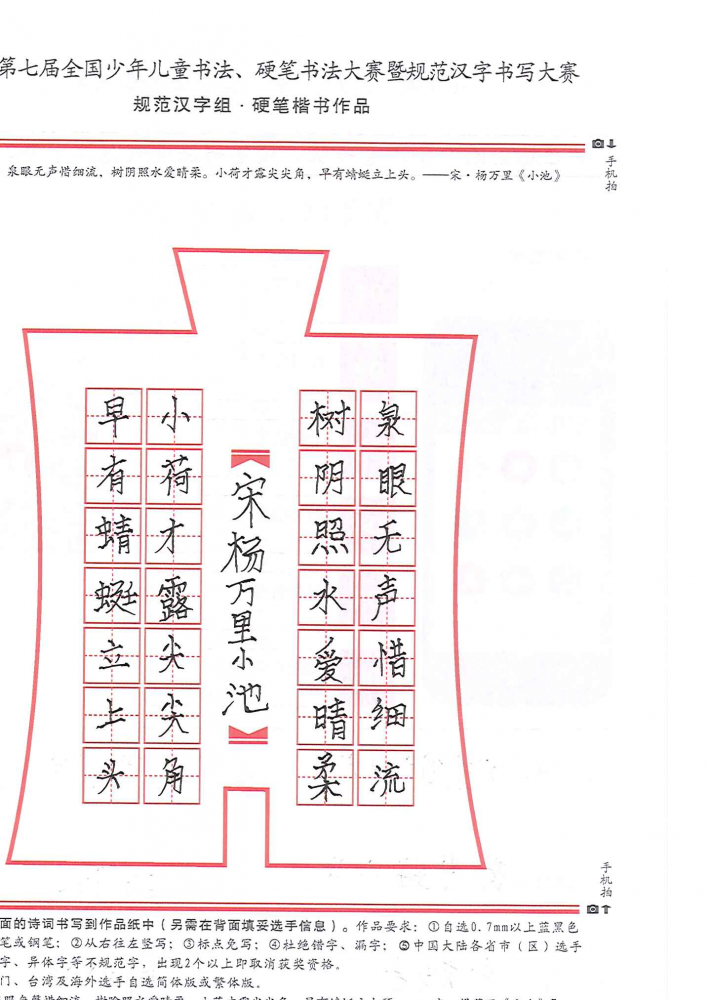 第七届全国少年儿童书法、硬笔书法大赛暨规范汉字书写大赛
规范汉字组·硬笔楷书作品
手机拍
泉眼无声惜细流，树阴照水爱晴柔。小荷才露尖尖角，早有蜻蜓立上头。——宋·杨万里《小池》
泉眼无声惜细流
树阴照水爱晴柔
宋杨万里小池
小荷才露尖尖角
早有蜻蜓立上头
手机拍
面的诗词书写到作品纸中（另需在背面填妥选手信息）。作品要求：①自选0.7mm以上蓝黑色
笔或钢笔；②从右往左竖写；③标点免写；④杜绝错字、漏字；⑤中国大陆各省市（区）选手
字、异体字等不规范字，出现2个以上即取消获奖资格。
门、台湾及海外选手自选简体版或繁体版。